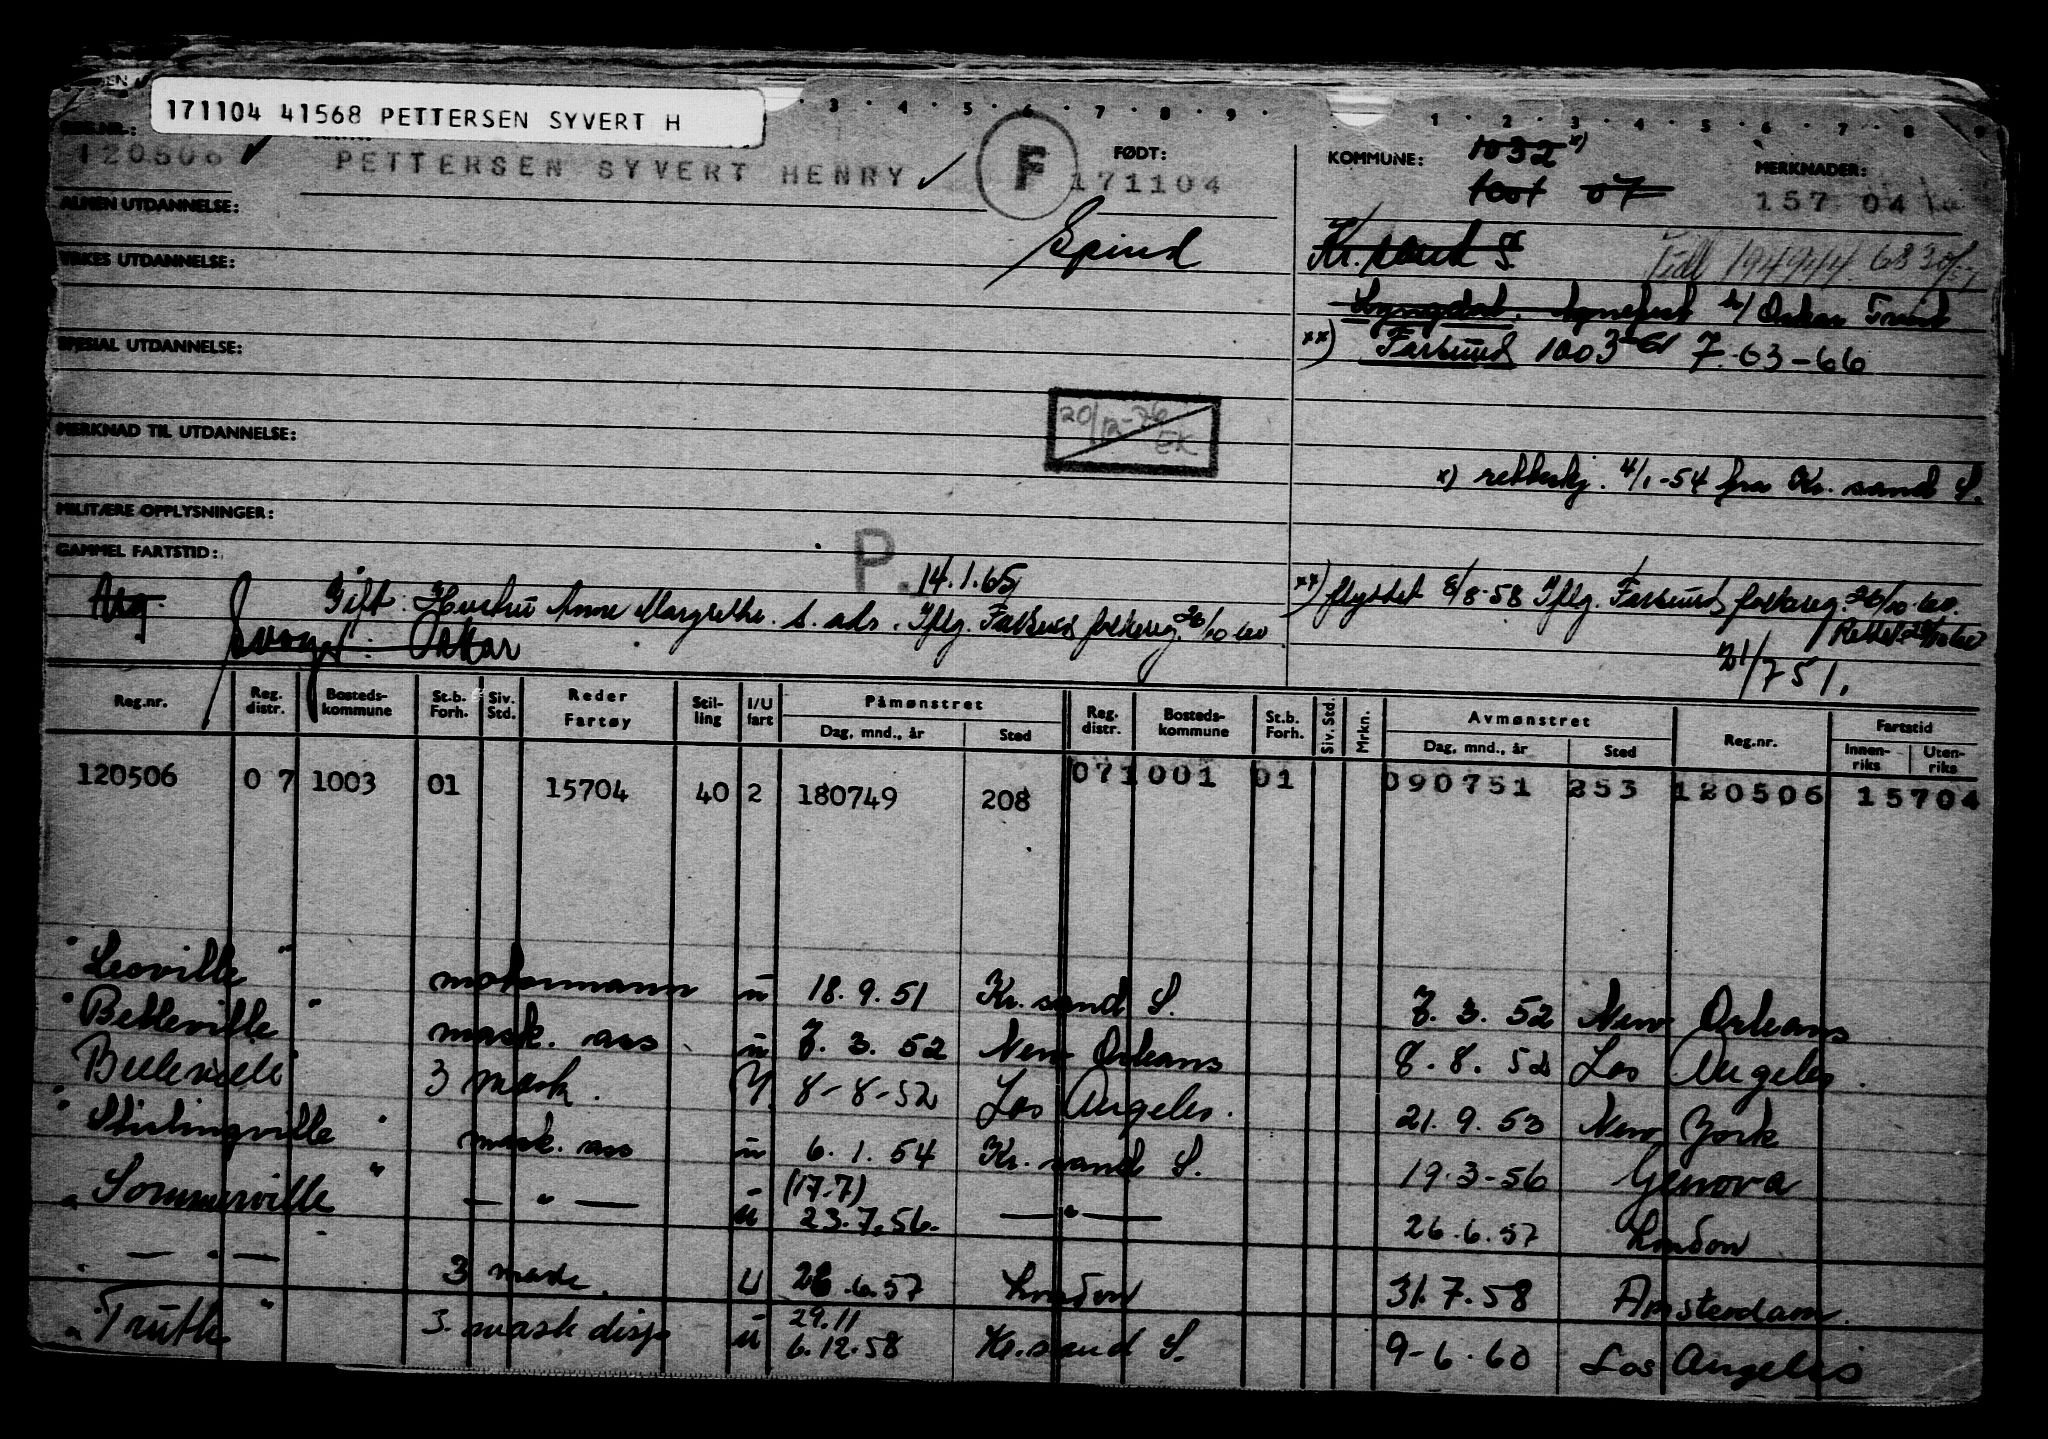 171104 41568 PETTERSEN SYVERT H
3 · 4 · 5 · 6 · 7 · 8 · 9 · 1 · 2 · 3 · 4 · 5 · 6 · 7 · 8 · 9
120506 PETTERSEN SYVERT HENRY F FØDT: 171104 KOMMUNE: 1032 x) MERKNADER: 157 04
07
ALMEN UTDANNELSE:
Spind Kr. sand S
YRKES UTDANNELSE:
Lyngdal. Agnefest
xx) Farsund 1003 7.63-66
SPESIAL UTDANNELSE:
20/12-76 EK
MERKNAD TIL UTDANNELSE:
x) 4/1-54 fra Kr. sand S.
MILITÆRE OPPLYSNINGER:
GAMMEL FARTSTID:
P. 14.1.65
Gift. Hustru Anne Margrethe. s. adr. Iflg. Farsund folkereg. 26/10-60
xx) flyttet 8/8-58 Iflg. Farsund folkereg. 26/10-60.
Oskar
31/7 51.
Reg.nr. Reg. distr. Bosteds-kommune St.b. Forh. Siv. Std. Reder Fartøy Stil-ling I/U fart Påmønstret Dag, mnd., år Sted Reg. distr. Bosteds-kommune St.b. Forh. Siv. Std. Mrkn. Avmønstret Dag, mnd., år Sted Reg.nr. Fartstid Innen-riks Uten-riks
120506 07 1003 01 15704 40 2 180749 208 071001 01 090751 253 120506 15704
"Leoville" motormann u 18.9.51 Kr. sand S. 7.3.52 New Orleans
"Belleville" mask. ass u 7.3.52 New Orleans 8.8.52 Los Angeles.
Belleville" 3 mask. U 8-8-52 Los Angeles. 21.9.53 New York
"Stirlingville" mask. ass u 6.1.54 Kr. sand S. 19.3-56 Genova
"Sommerville" — " — u (17.7) 23.7.56. — " — 26.6.57 London
— " — 3 mask. U 26.6.57 London 31.7.58 Amsterdam.
"Truth" 3. mask disp u 29.11 6.12.58 Kr. sand S. 9-6.60 Los Angeles